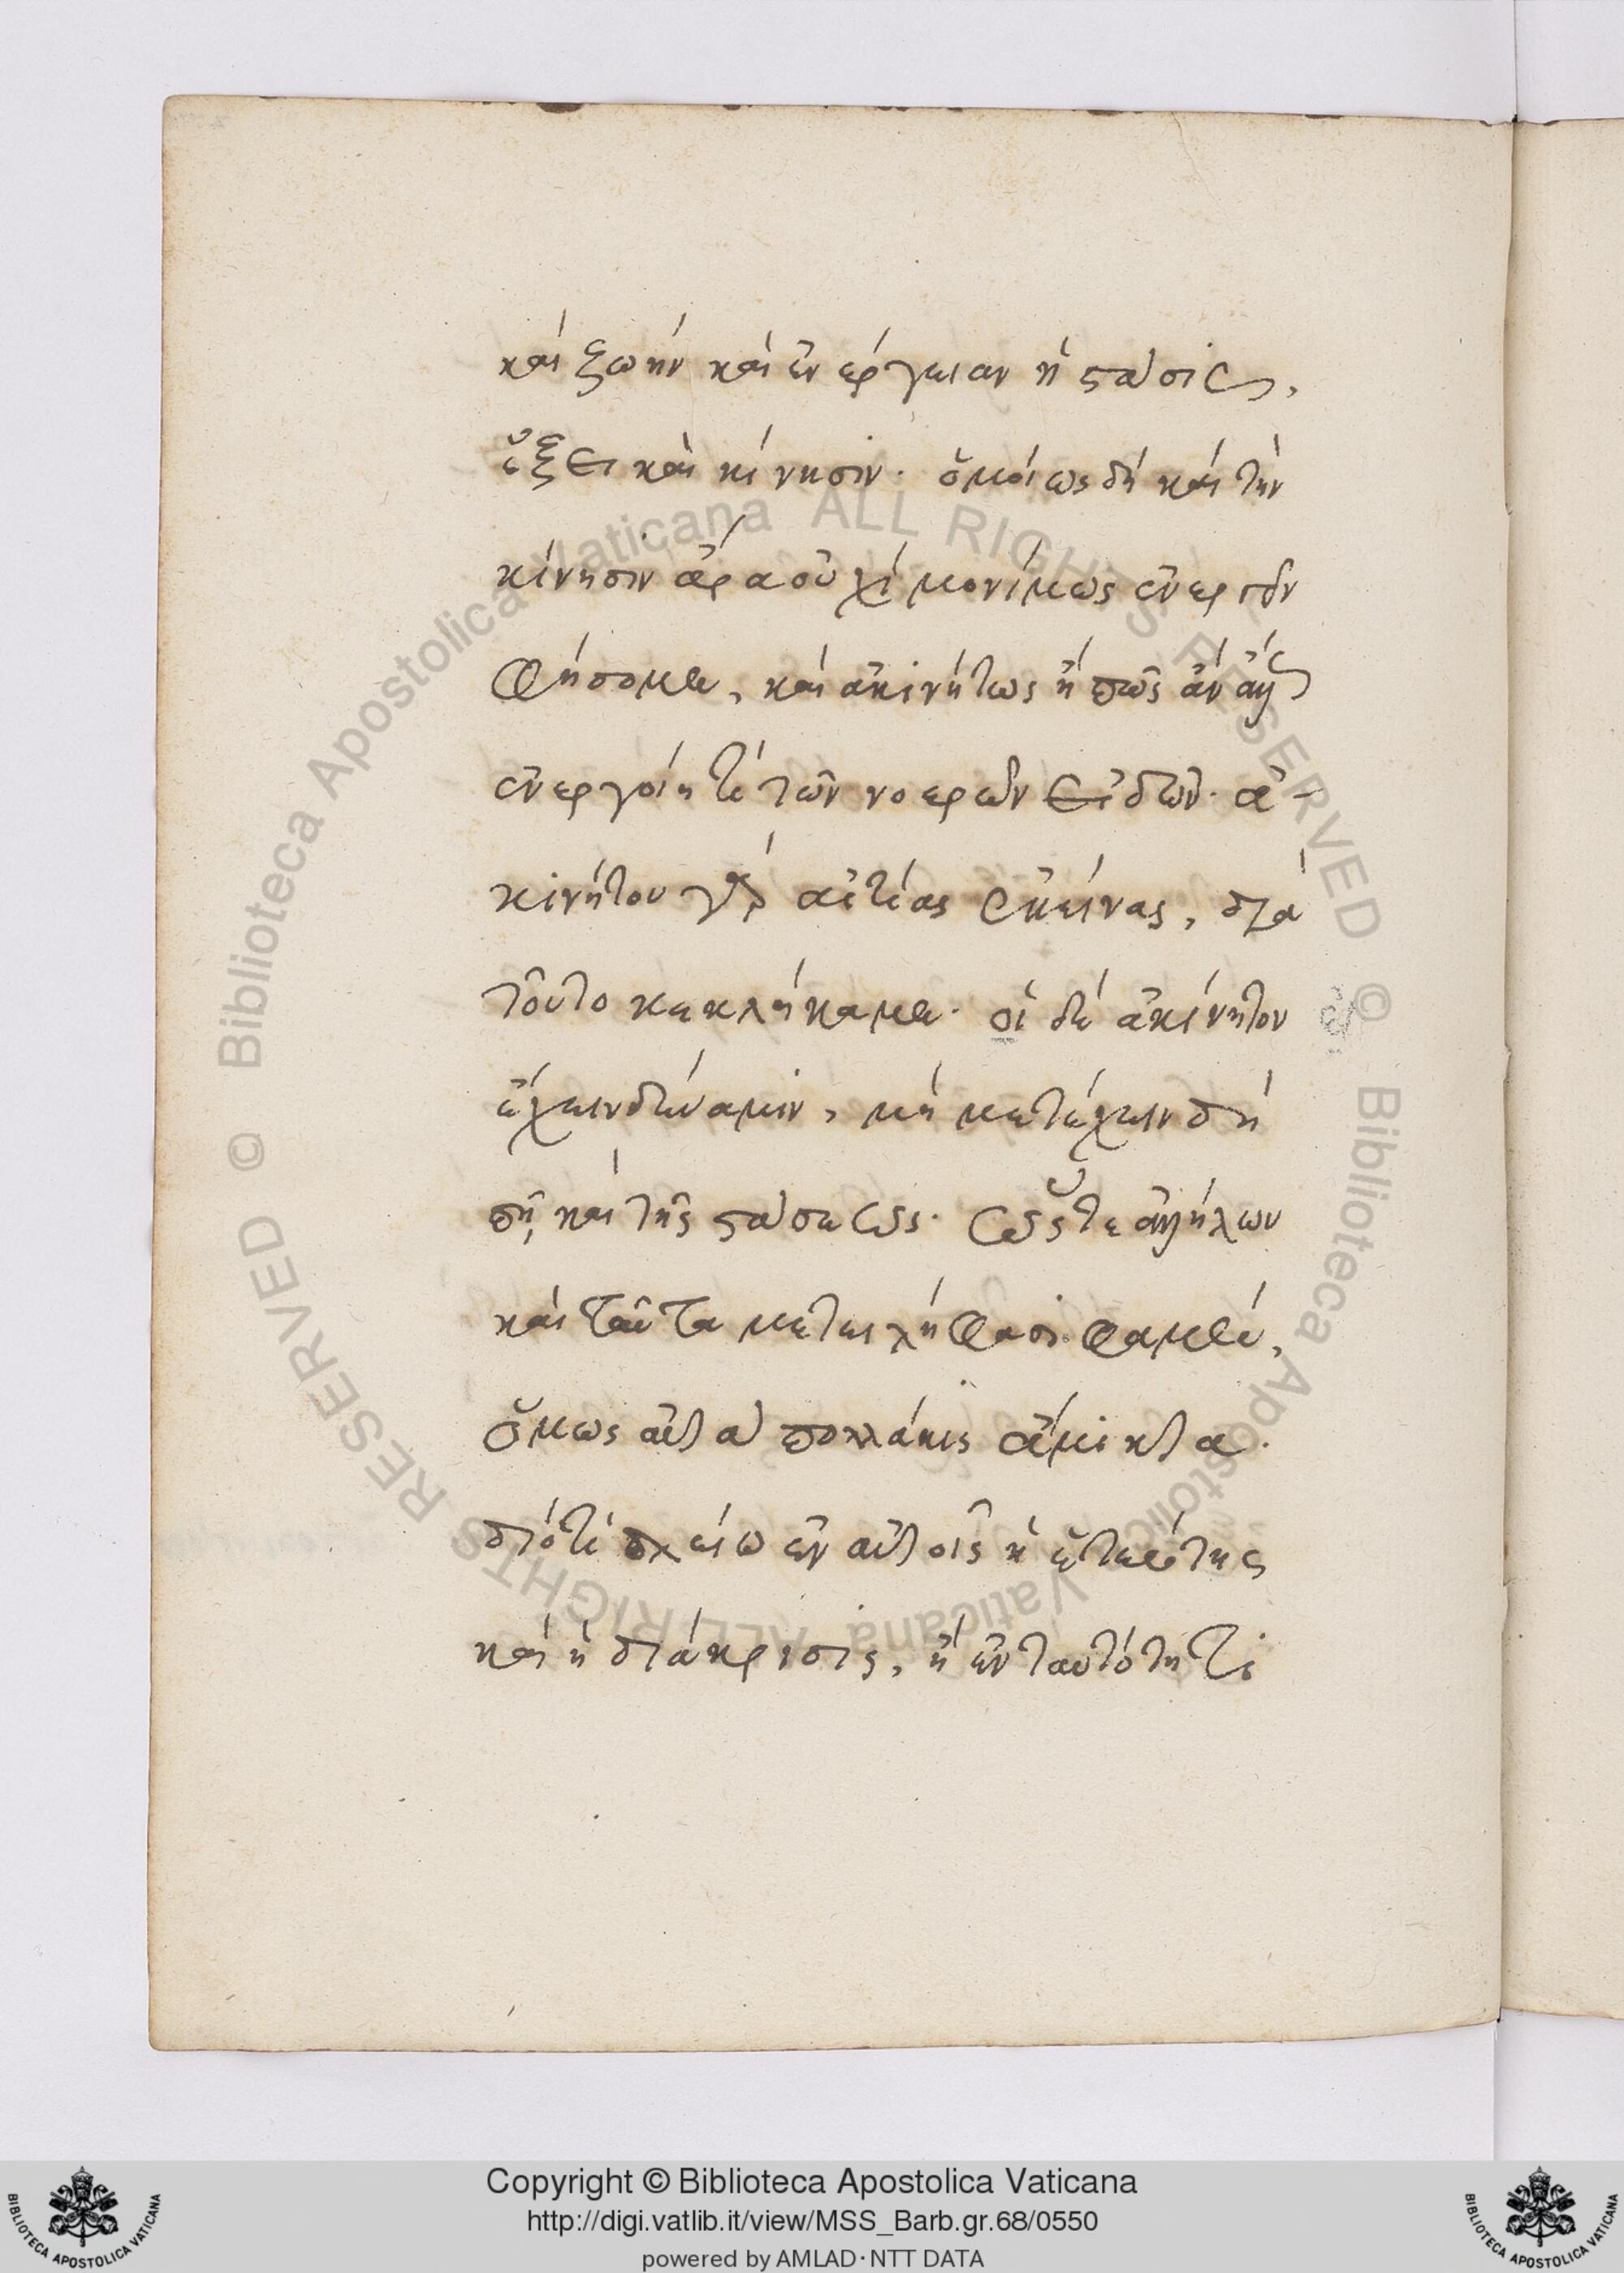 καὶ ζωὴν καὶ ἐνέργειαν ἡ στάσις,
ἕξει καὶ κίνησιν· ὁμοίως δὴ καὶ τὴν
κίνησιν ἆρα οὐχὶ μονίμως ἐνεργεῖν
φήσομεν, καὶ ἀκινήτως ἢ πῶς ἂν ἄλλως
ἐνεργοίη τὶ τῶν νοερῶν εἰδῶν· ἀ-
κινήτου γὰρ αἰτίας ἐκείνας, διὰ
τοῦτο κεκλήκαμεν· οἱ δὲ ἀκίνητον
ἔχειν δύναμιν, μὴ μετέχειν δὴ
πῃ καὶ τῆς στάσεως· ὥστε ἀλλήλων
καὶ ταῦτα μετειλήφασι φαμὲν,
ὅμως αὐτὰ πολλάκις ἄμικτα·
διότι πλείω ἐν αὐτοῖς ἡ ἑτερότης
καὶ ἡ διάκρισις, ἢ ἐν ταυτότητι
© Biblioteca Apostolica Vaticana ALL RIGHTS RESERVED
© Biblioteca Apostolica Vaticana ALL RIGHTS RESERVED
Copyright © Biblioteca Apostolica Vaticana
http://digi.vatlib.it/view/MSS_Barb.gr.68/0550
powered by AMLAD·NTT DATA
BIBLIOTECA APOSTOLICA VATICANA
BIBLIOTECA APOSTOLICA VATICANA